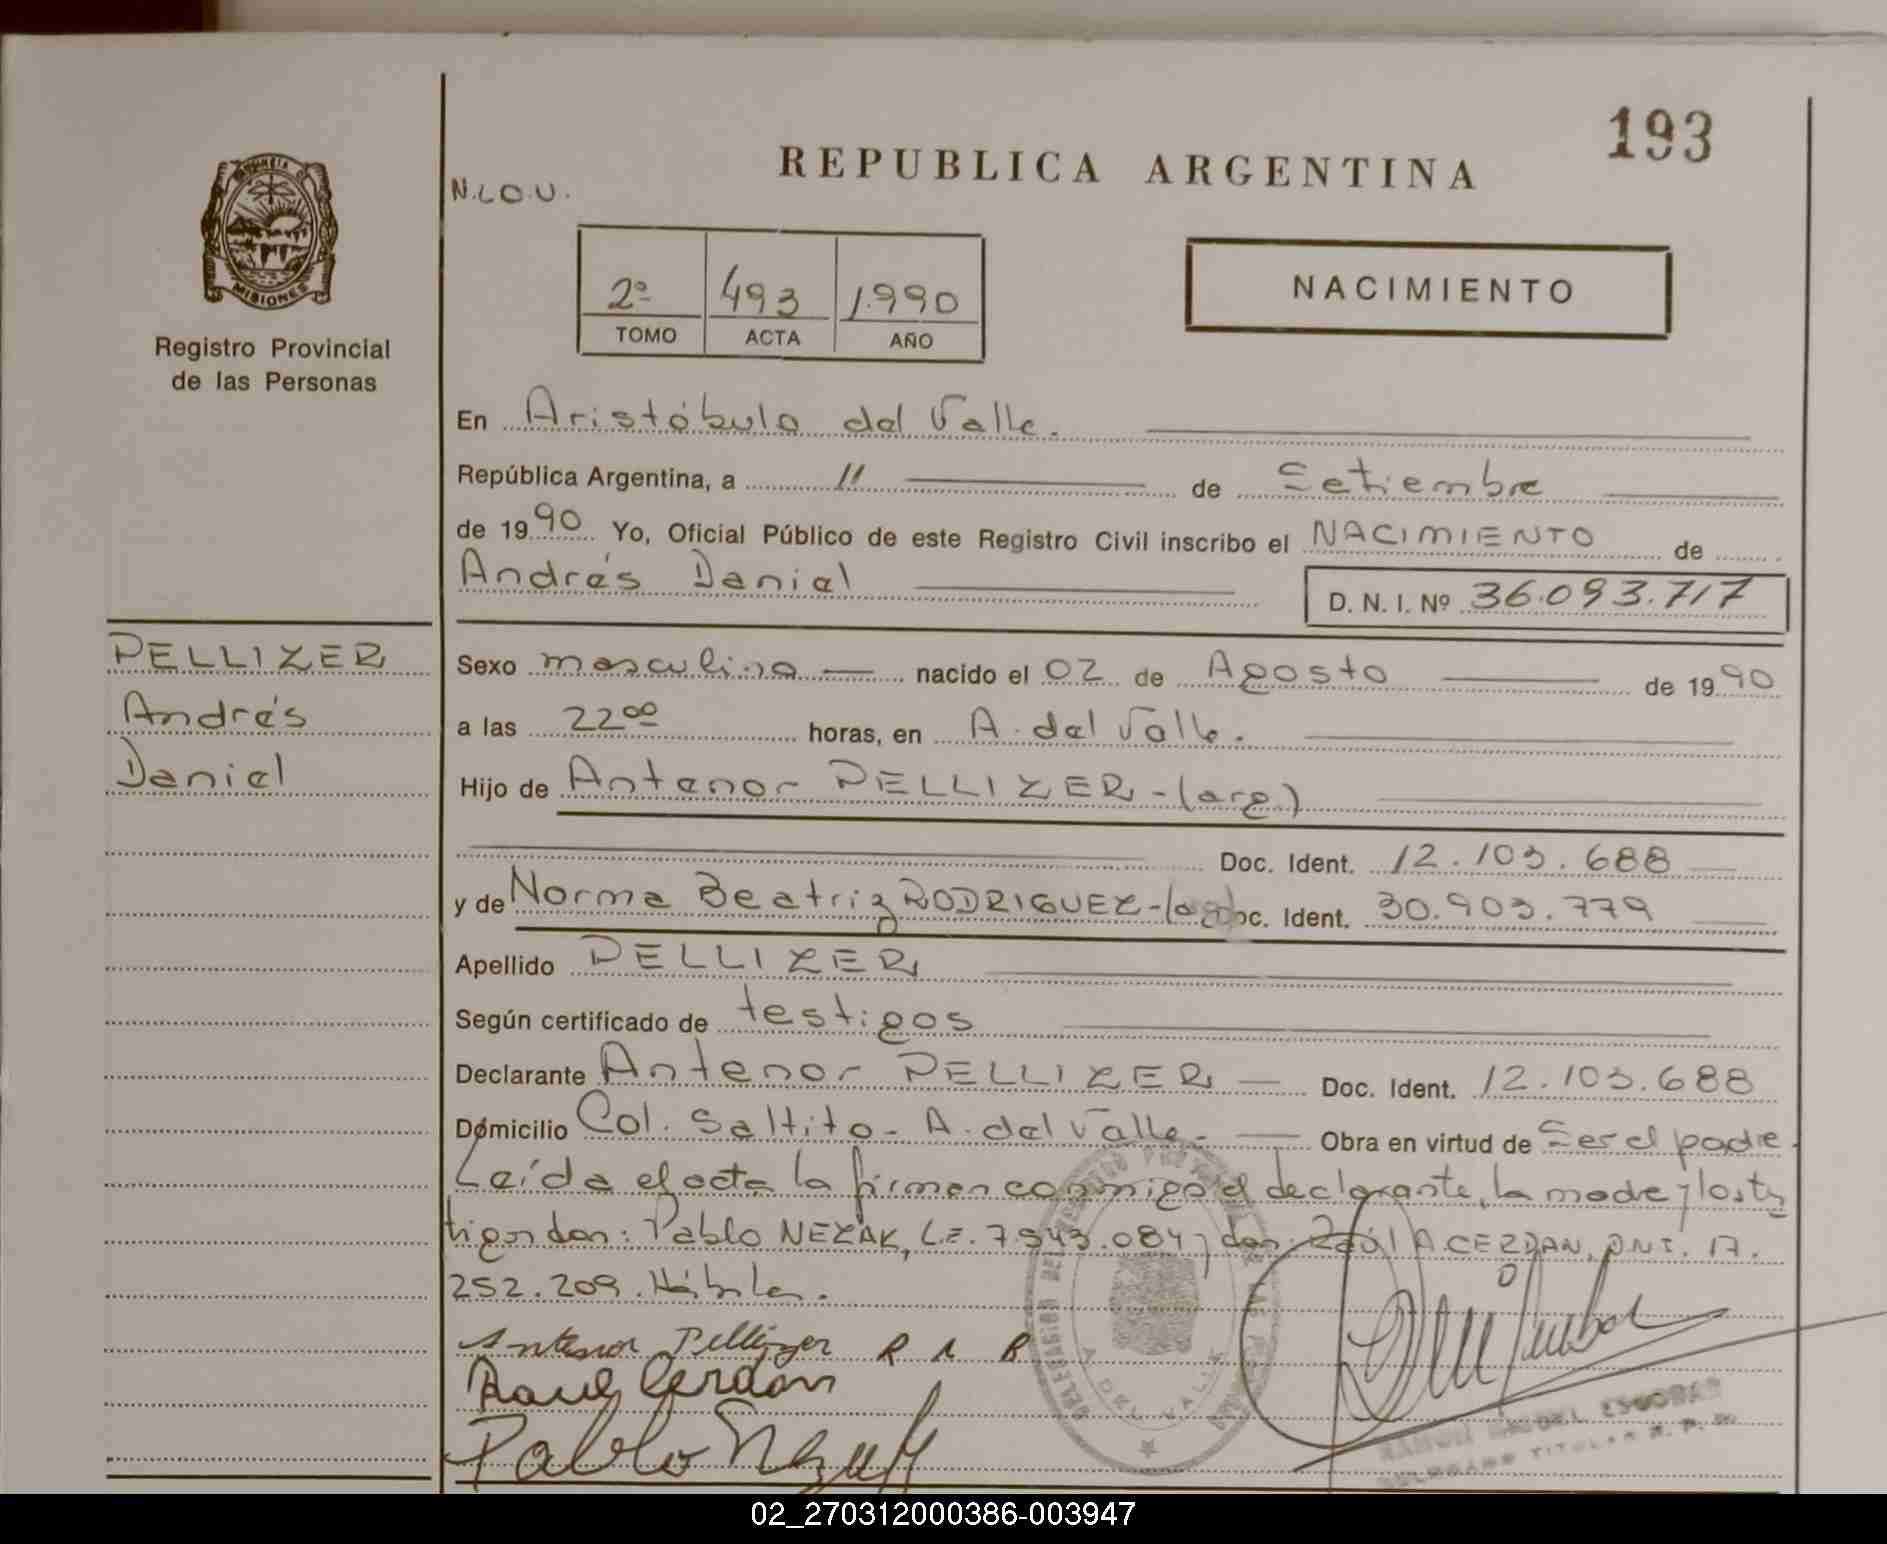 193
REPUBLICA ARGENTINA
N.L.O.U.
PROVINCIA
MISIONES
Registro Provincial
de las Personas
2º 493 1.990
TOMO ACTA AÑO
NACIMIENTO
En Aristóbulo del Valle.
República Argentina, a 11 de Setiembre
de 1990 Yo, Oficial Público de este Registro Civil inscribo el NACIMIENTO de
Andrés Daniel
D. N. I. Nº 36.093.717
PELLIZER
Andrés
Daniel
Sexo masculino nacido el 02 de Agosto de 1990
a las 22 00 horas, en A. del Valle.
Hijo de Antenor PELLIZER-(arg.)
Doc. Ident. 12.103.688
y de Norma Beatriz RODRIGUEZ-(arg) Doc. Ident. 30.903.779
Apellido PELLIZER
Según certificado de testigos
Declarante Antenor PELLIZER Doc. Ident. 12.103.688
Domicilio Col. Saltito - A. del Valle. Obra en virtud de Ser el padre.
Leída el acta la firman conmigo el declarante, la madre y los tes
tigos don: Pablo NEZAK, L.E. 7.543.084 y don: Raúl A. CERDAN, DNI. 17.
252.209. Hábiles.
Antenor Pellizer R N B
Raul Cerdan
Pablo Nezak
A. DEL VALLE
RAMON MIGUEL ESCOBAR
DELEGADO TITULAR R. P. P.
02_270312000386-003947